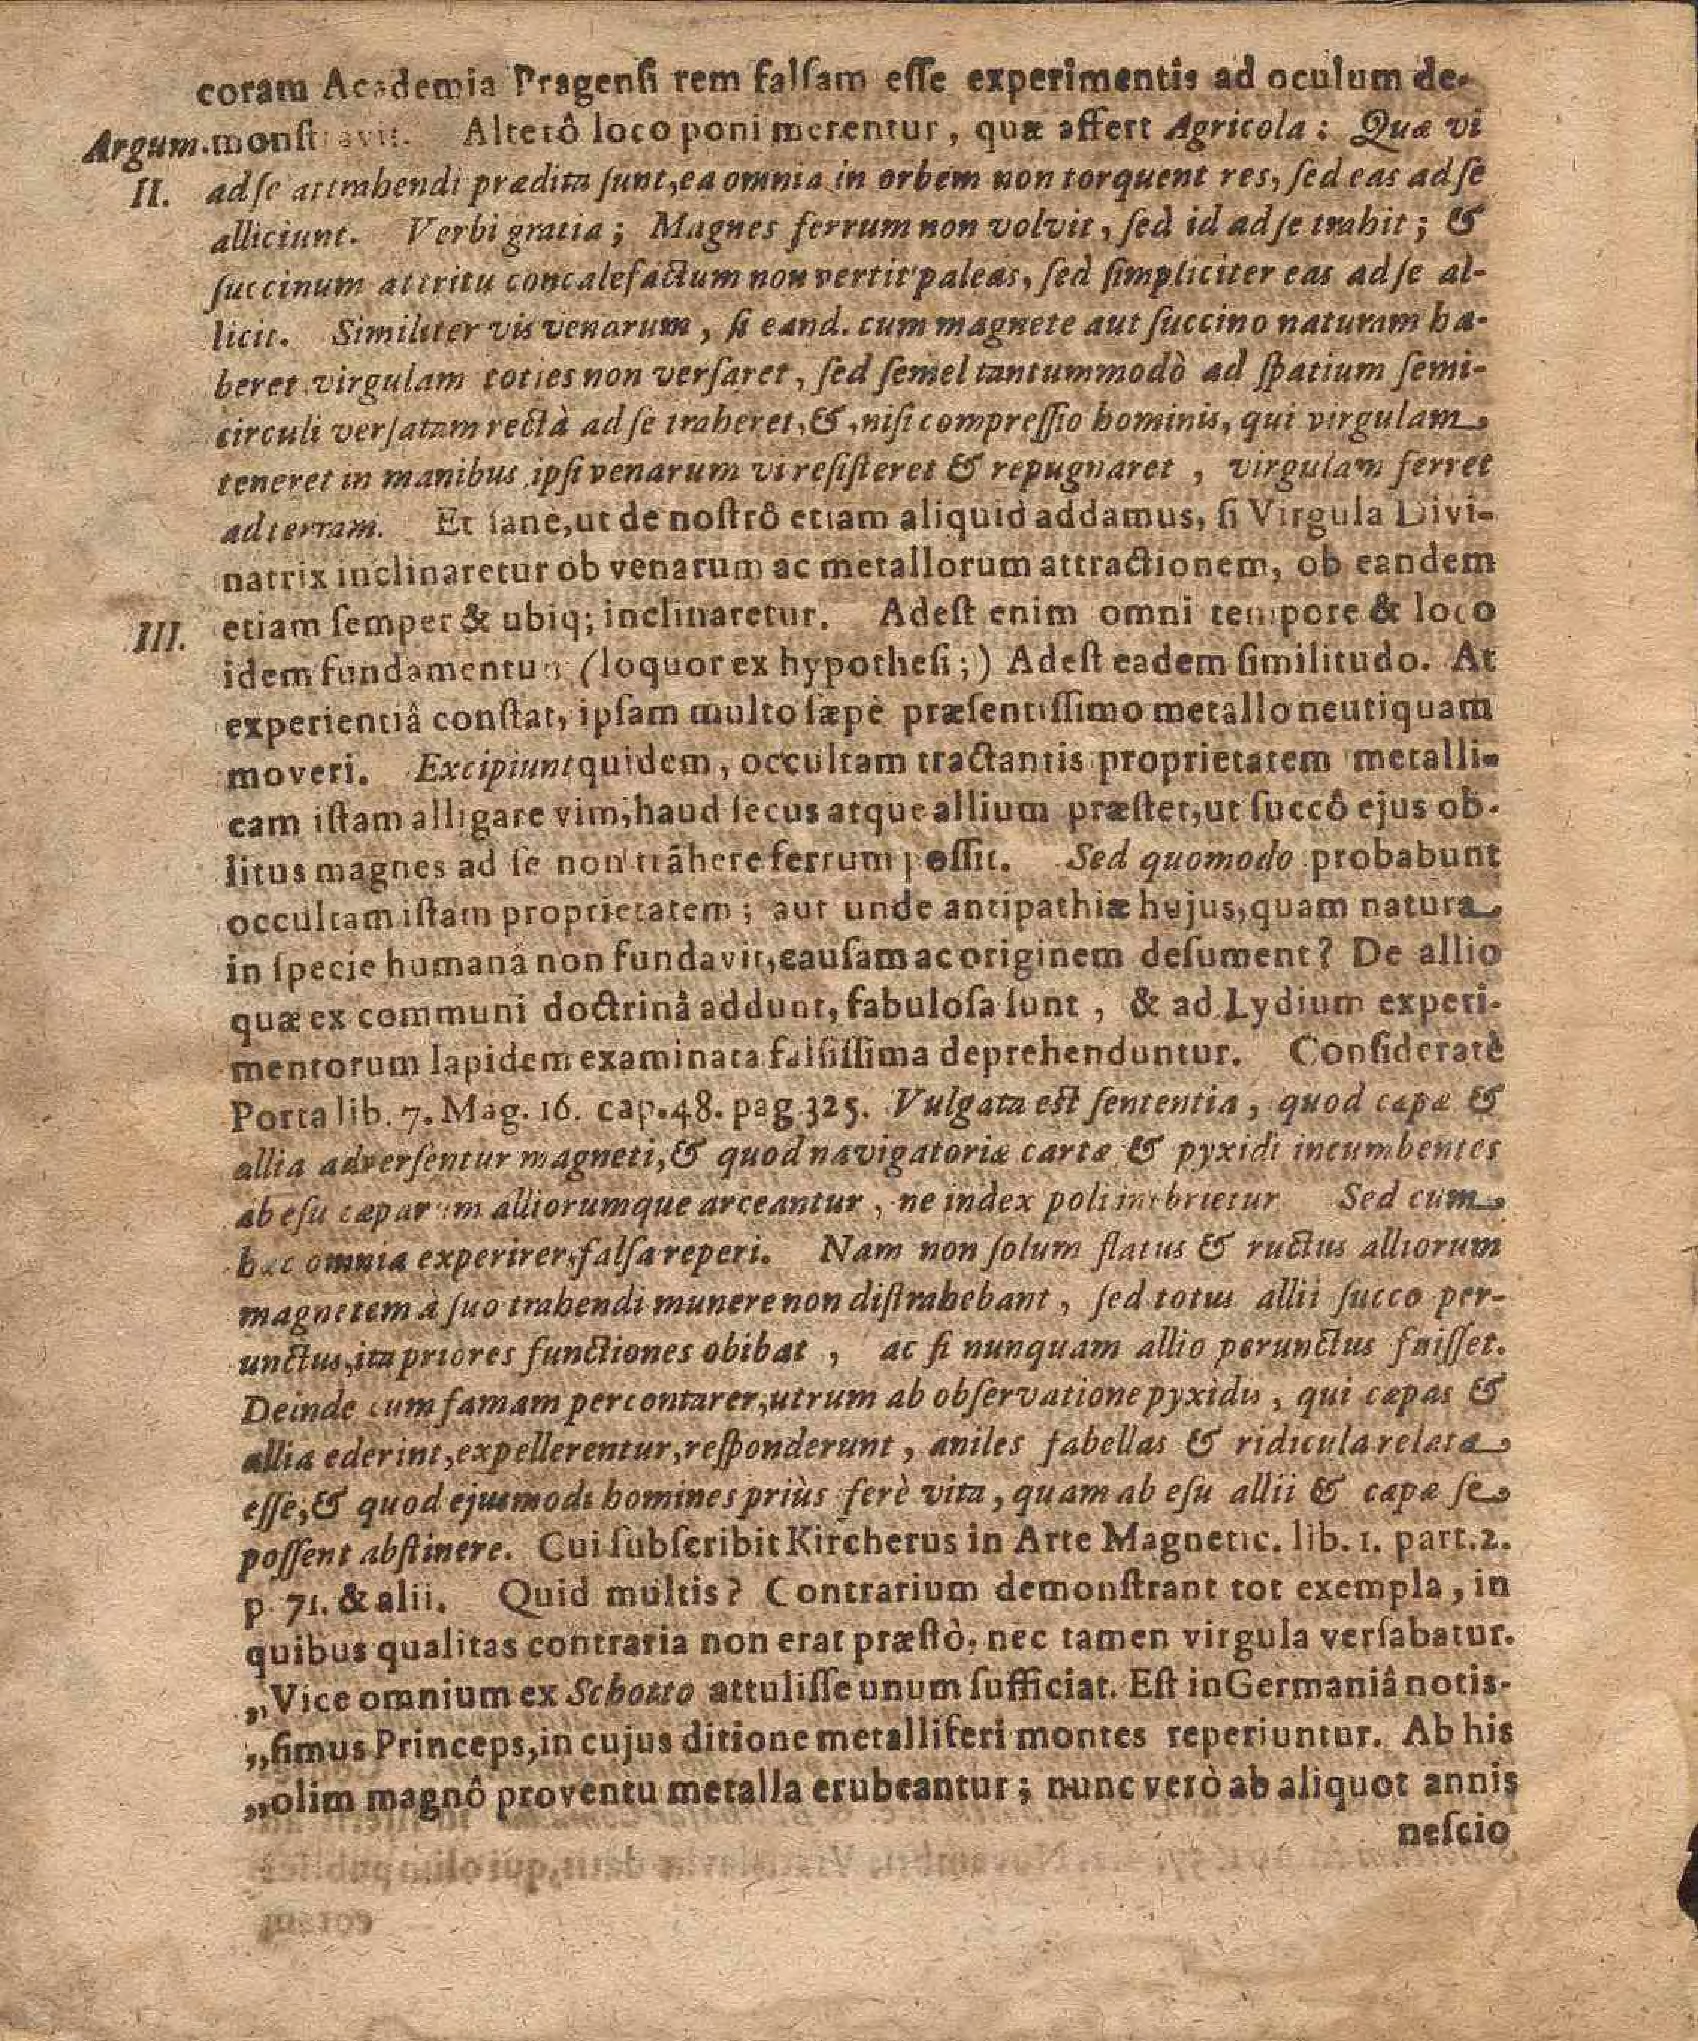 coram Academia Pragensi rem falſam eſſe experimentis ad oculum de-
Argum. monſtravit. Alterô loco poni merentur, quæ affert Agricola: Quæ vi
II. ad ſe attrahendi prædita ſunt, ea omnia in orbem non torquent res, ſed eas ad ſe
alliciunt. Verbi gratia; Magnes ferrum non volvit, ſed id ad ſe trahit; &
ſuccinum attritu concalefactum non vertit paleas, ſed ſimpliciter eas ad ſe al-
licit. Similiter vis venarum, ſi eand. cum magnete aut ſuccino naturam ha-
beret virgulam toties non verſaret, ſed ſemel tantummodò ad ſpatium ſemi-
circuli verſatam rectà ad ſe traheret, &, niſi compreſſio hominis, qui virgulam
teneret in manibus ipſi venarum vi reſiſteret & repugnaret, virgulam ferret
ad terram. Et ſane, ut de noſtrô etiam aliquid addamus, ſi Virgula Divi-
natrix inclinaretur ob venarum ac metallorum attractionem, ob eandem
III. etiam ſemper & ubiq; inclinaretur. Adeſt enim omni tempore & loco
idem fundamentum (loquor ex hypotheſi;) Adeſt eadem ſimilitudo. At
experientiâ conſtat, ipſam multo ſæpè præſentiſſimo metallo neutiquam
moveri. Excipiunt quidem, occultam tractantis proprietatem metalli-
cam iſtam alligare vim, haud ſecus atque allium præſtet, ut ſuccô ejus ob-
litus magnes ad ſe non trahere ferrum poſſit. Sed quomodo probabunt
occultam iſtam proprietatem; aut unde antipathiæ hujus, quam natura
in ſpecie humanâ non fundavit, cauſam ac originem deſument? De allio
quæ ex communi doctrinâ addunt, fabuloſa ſunt, & ad Lydium experi-
mentorum lapidem examinata falſiſſima deprehenduntur. Conſideratè
Porta lib. 7. Mag. 16. cap. 48. pag. 325. Vulgata eſt ſententia, quod cæpæ &
allia adverſentur magneti, & quod navigatoriæ cartæ & pyxidi incumbentes
ab eſu cæparum alliorumque arceantur, ne index poli inebrietur Sed cum
hæc omnia experirer, falſa reperi. Nam non ſolum flatus & ructus alliorum
magnetem à ſuo trahendi munere non diſtrahebant, ſed totus allii ſucco per-
unctus, ita priores functiones obibat, ac ſi nunquam allio perunctus fuiſſet.
Deinde cum famam percontarer, utrum ab obſervatione pyxidis, qui cæpas &
allia ederint, expellerentur, reſponderunt, aniles fabellas & ridicula relata
eſſe, & quod ejusmodi homines priùs ferè vita, quam ab eſu allii & cæpæ ſe
poſſent abſtinere. Cui ſubſcribit Kircherus in Arte Magnetic. lib. 1. part. 2.
p. 71. & alii. Quid multis? Contrarium demonſtrant tot exempla, in
quibus qualitas contraria non erat præſtò, nec tamen virgula verſabatur.
„Vice omnium ex Schotto attuliſſe unum ſufficiat. Eſt in Germaniâ notis-
„ſimus Princeps, in cujus ditione metalliferi montes reperiuntur. Ab his
„olim magnô proventu metalla erubeantur; nunc verò ab aliquot annis
neſcio